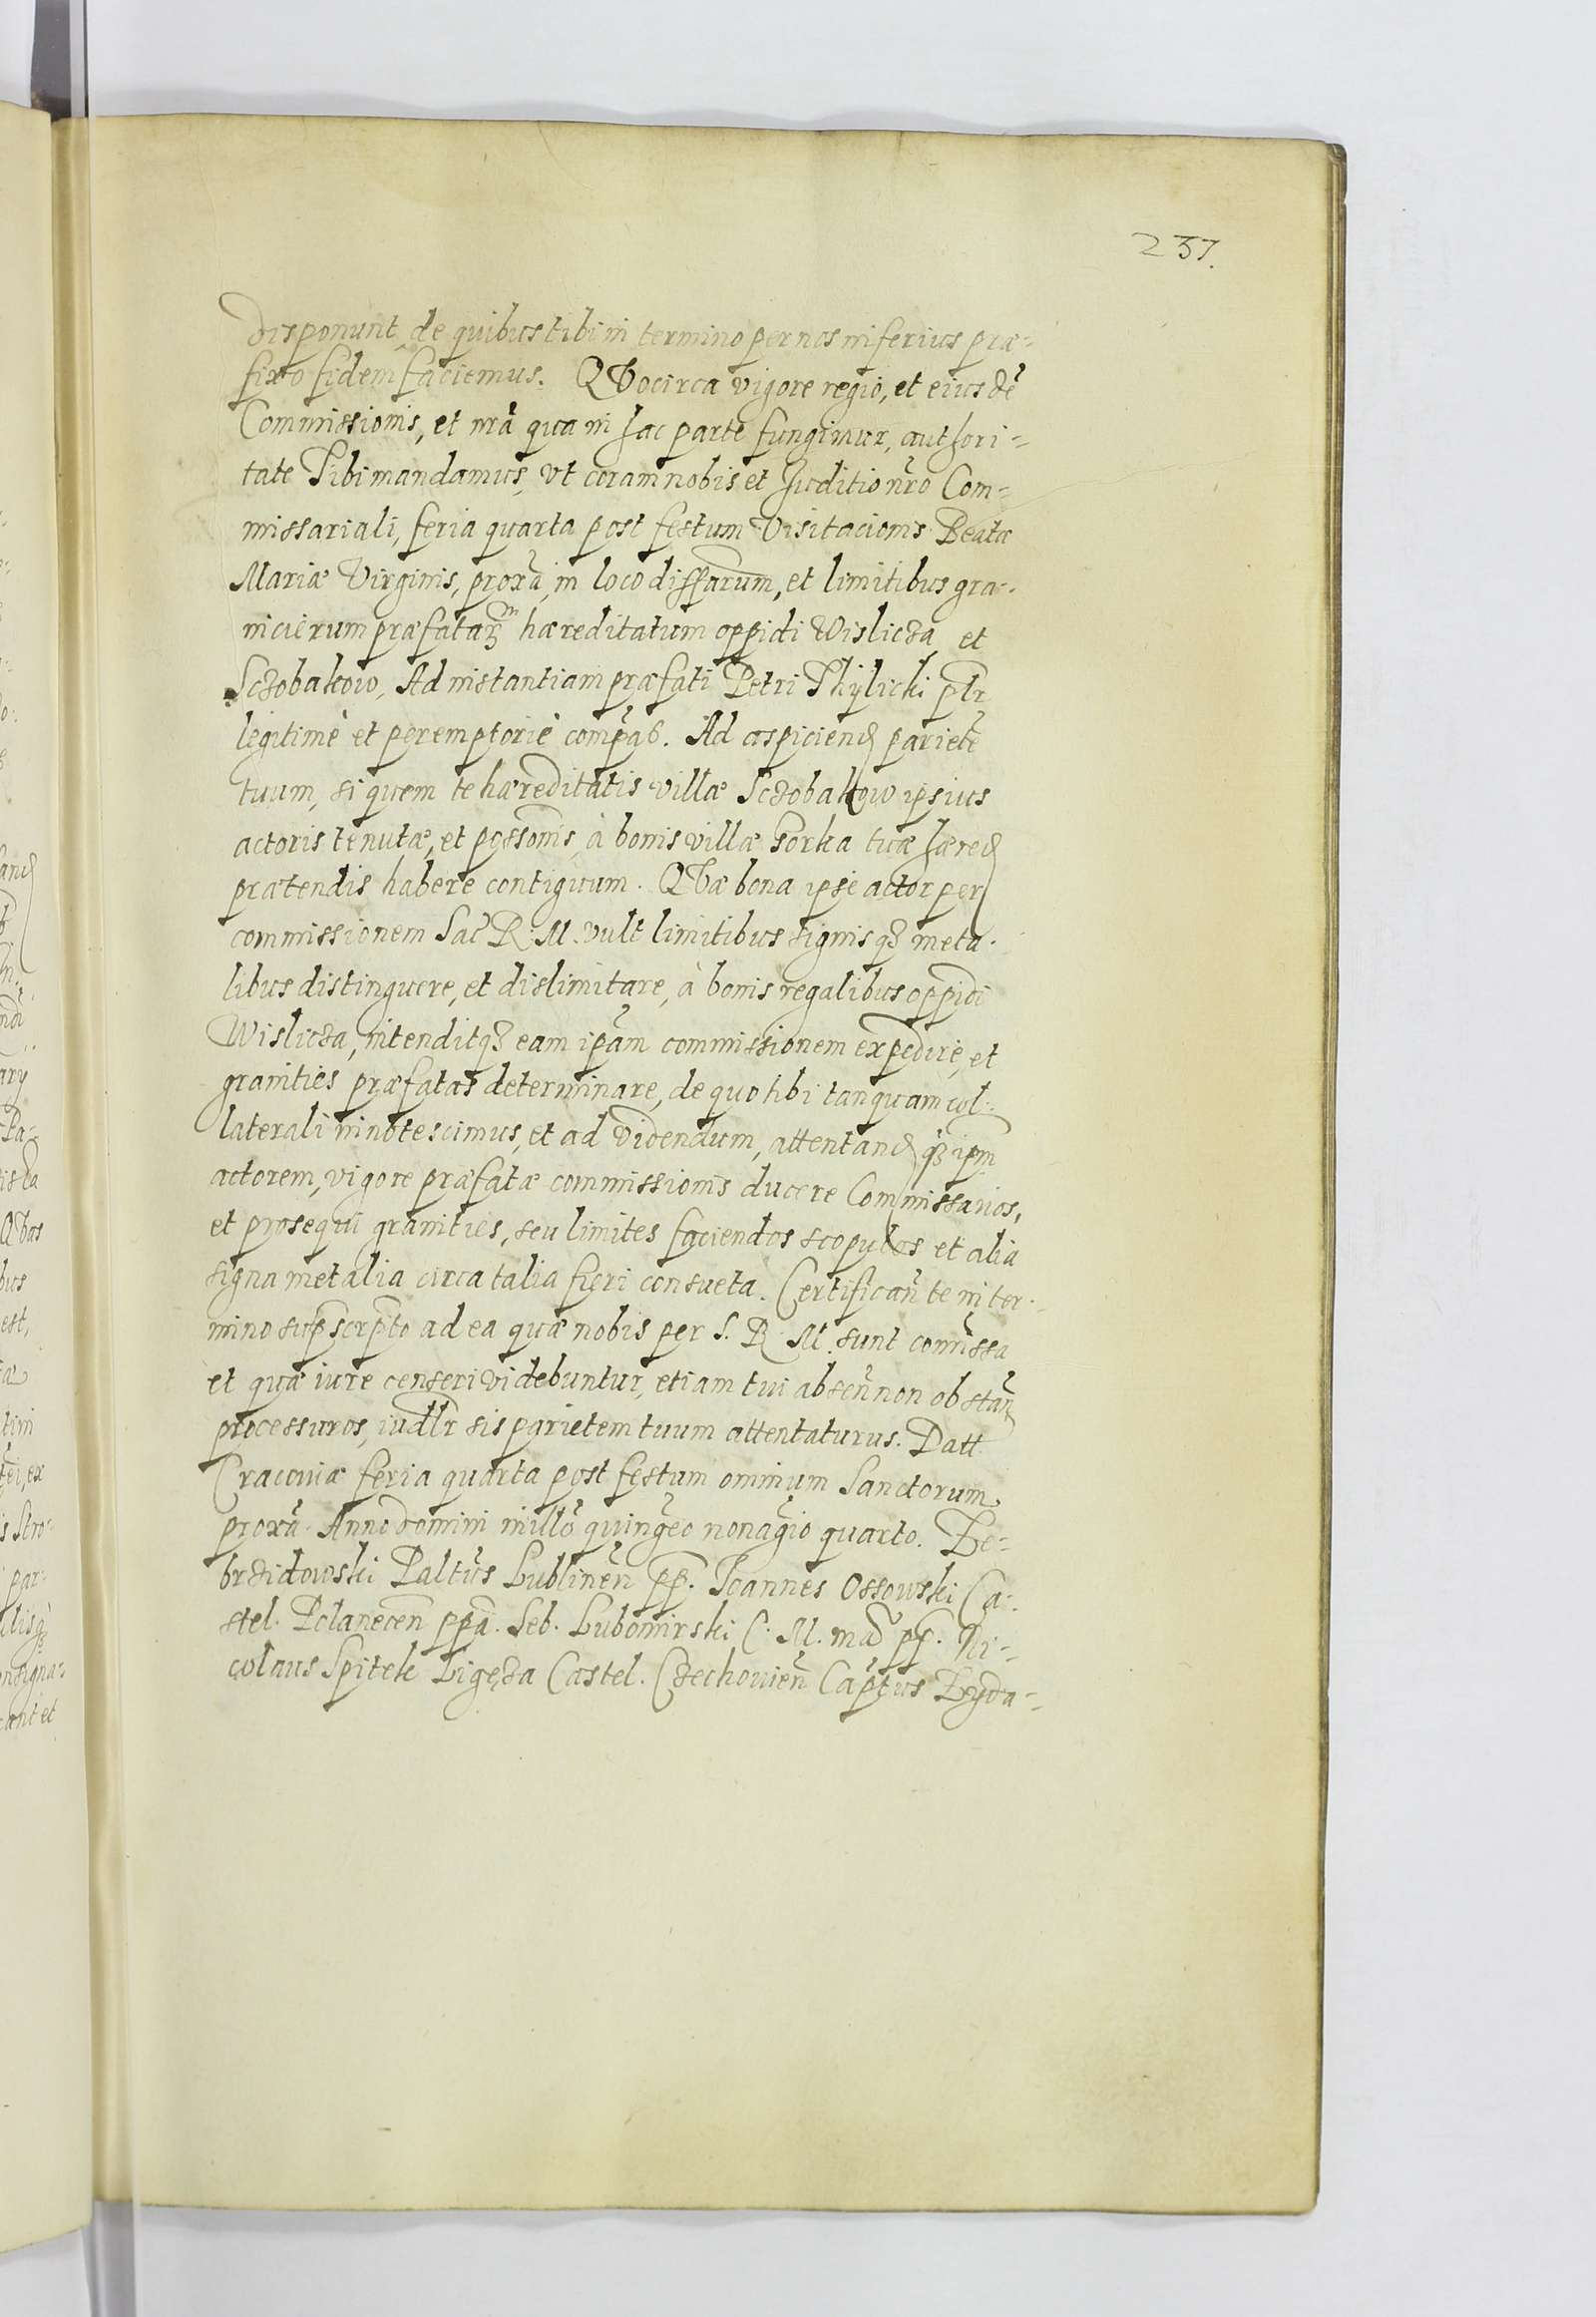 237.
disponunt, de quibus tibi in termino per nos inferius præ=
fixo fidem faciemus. QVocirca vigore regio, et eiusdē
Commissionis, et nr̃a qua in hac parte fungimur, authori=
tate Tibi mandamus, vt coram nobis et Iuditio nr̃o Com=
missariali, feria quarta post festum Visitacionis Beatæ
Mariæ Virginis, proxã, in loco diffarum, et limitibus gra=
nicierum præfatar̃m hæreditatum oppidi Wisliczą, et
Sczobakow, Ad instantiam præfati Petri Thÿlicki plr̃
legitimè et peremptoriè comp̃as. Ad aspiciend parietẽ
tuum, si quem te hæreditatis villæ Sczobakow ipsius
actoris tenutæ, et possom̃s, à bonis villæ Gorka tuæ hæred
prætendis habere contiguum. QVæ bona ipse actor per
commissionem Sac̃ R. M. vult limitibus signisq3 meta=
libus distinguere, et dislimitare, à bonis regalibus oppidi
Wislicza, intenditq3 eam ip̃am commissionem expedire, et
granities præfatas determinare, de quo tibi tanquam col=
laterali innotescimus, et ad videndum, attentand q3 ip̃m
actorem, vigore præfatæ commissionis ducere Commissarios,
et prosequi granities, seu limites faciendos scopulos et alia
signa metalia circa talia fieri consueta. Certifican̄ te in ter=
mino sup̃scrp̃to ad ea quæ nobis per S. R. M. sunt com̃issa
et quæ iure censeri videbuntur, etiam tui absen̄ non obstan̄
processuros, iudlr̃ sis parietem tuum attentaturus. Datt
Cracoviæ feria quarta post festum omnium Sanctorum
proxã. Anno domini millõ quingẽo nonagĩo quarto. Ze=
brzidowski Paltũs Lublinen̄ pp. Ioannes Ossowski Ca=
stel. Polanecen̄ ppã. Seb. Lubomirski C. M. mãd pp. Ni=
colaus Spitek Ligęza Castel. Czechovien̄ Cap̃tus Zyda=